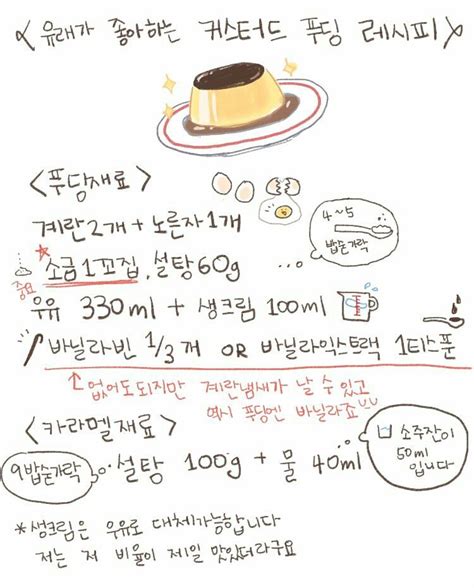 <유래가 좋아하는 커스터드 푸딩 레시피>
<푸딩재료>
계란2개 + 노른자1개
4~5
밥숟가락
중요 소금1꼬집, 설탕60g
우유 330ml + 생크림 100ml
바닐라빈 1/3개 OR 바닐라익스트랙 1티스푼
↑없어도되지만 계란냄새가 날 수 있고
역시 푸딩엔 바닐라죠
<카라멜재료>
소주잔이
50ml
입니다
9밥숟가락 설탕 100g + 물 40ml
*생크림은 우유로 대체가능합니다
저는 저 비율이 제일 맛있더라구요